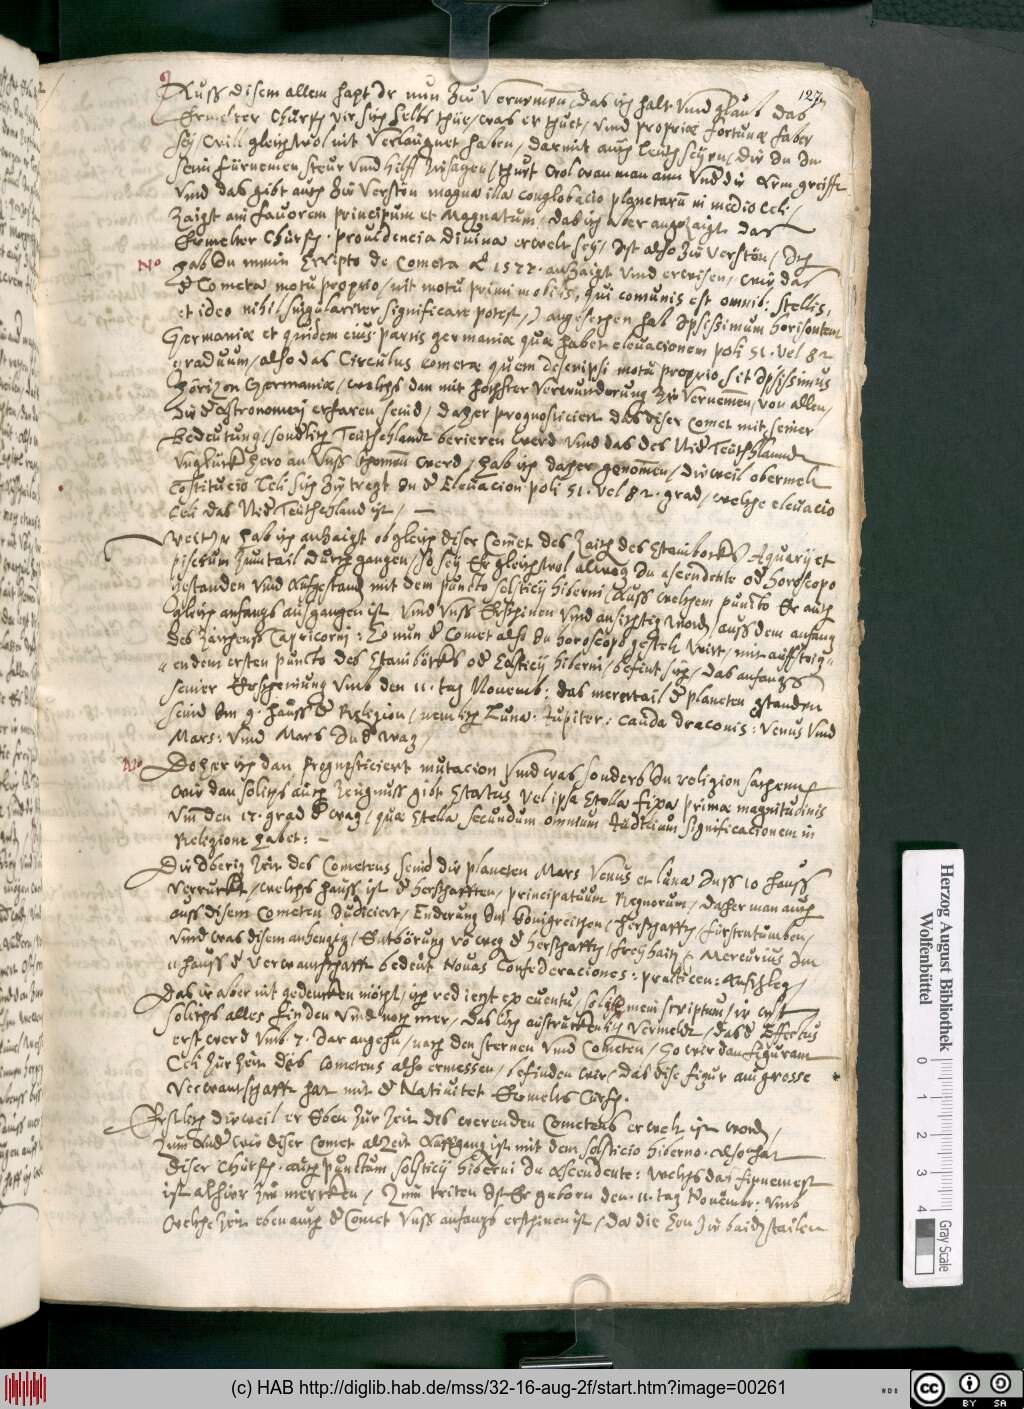 127
Auß disem allem hapt Ir nun zu vernemen, das ich halt vnnd glaub das
Ermelter Churf. vir sich selbs thüe, was er thuet, vnd propriae fortunae faber
sey, will gleichwol nit verlaugnet haben, darmit auch leuth seyen, die In In
seim fürnemen steur vnnd hilff zusagen, thuet wol wan man ann vnd die Arm greifft
vnnd das gibt auch zu versten magna illa conglobatio planetarum in medio Celi,
Zaigt ani fauorem principum et Magnatum, das ich aber anzaigt das
Ermelter Churf. prouidencia diuina erwelt sey, Ist also zu versten, Ich
N° hab In meim scripto de Cometa A° 1577. anzaigt vnd erwisen, wie das
d Cometa motu proprio, nit motu primi mobilis, qui comunis est omnib: stellis,
et ideo nihil singulariter significare potest, angesechen hab Ipsissimum horisontem
Germaniae et quidem eius partis germaniae quae habet eleuacionem poli 51. vel 52
graduum, also das Circulus cometae quem descripsi motu proprio sit Ipsissimus
Horizon Germaniae, welchs dan mit hochster verwunderung zu vernemen, von allen,
die d Astronomey erfaren seind, daher prognosticiert das diser Comet mit seiner
bedeutung, sonderlich Teutschlandt berieren werd vnnd das des Nid Teutschlannd
vnglück hero an vnß khomen werd, hab ich daher genomen, die weil obermelt
Constitucio Celi sich zu tregt In d Eleuacion poli 51. vel 52. grad, welche eleuacio
Celi das Nid Teutschland ist, —
Weiter hab ich anzaigt ob gleich diser Comet des Zaich des Stainbocks Aquarij et
piscium zum tail durch gangen, So sey Er gleichwol alweg In ascendente od horoscopo
gestanden vnd Auffgestand mit dem puncto solsticij hiberni, Auß welchem puncto Er auch
gleich anfangs ausgangen ist vnd vnß Erschinen vnd ansichtig word, auß dem anfang
des Zaichens Capricorni: So nun d Comet also In horoscopo gestelt wirt, mit auffsteig=
=endem ersten puncto des Stainböcks od Solsticij hiberni, befint sich, das anfangs
seiner Erscheinung vmb den 11. tag Nouemb: das merertail d planeten gstanden
seind Im 9. hauß d Religion, nemlich Luna. Jupiter: Cauda draconis: Venus vnd
Mars: vnd Mars In d Wag,
N° Daher ich dan Prognosticiert mutacion vnd was sonders In religion sachenn
wie dan solichs auch zeugnuß gibt Status vel ipsa Stella fixa primae magnitudinis
vm den 17. grad d wag, quae Stella secundum omnium Iudicium significacionem in
Religione habet: —
Die vberig Zeit des Cometens seind die planeten Mars Venus et luna Inß 10 hauß
verruckt, welchs hauß ist d herschafften, principatuum Regnorum, daher man auch
auß disem Cometen Iudiciert, Enderung Im Konigreichen, herschafften, fürstenthumben,
vnd was disem anhengig, Entbörung vo weg d herschafften, freyhait, Mercurius Im
11 hauß d verwantschafft bedeut Nouas Confederaciones: practicen: Anschleg,
Das ir aber nit gedencken möcht, ich red ietzt ex euentu, so ist mein scriptum, ir wist
solichs alles finden vnnd noch mer, das ich austruckenlich vermeldt, das d Effectus
erst werd vmb 7. Iar angehn, nach den sternen vnd Cometen, So wir dan figuram
Celi zur Zeit des Cometens also ermessen, befinden wir, das dise figur ain grosse
verwantschafft hat mit d Natiuitet Ermelts Curf.
Erstlich dieweil er Eben zur zeit des werenden Cometens erwelt ist word,
Zum And wie diser Comet alzeit Auffgang ist mit dem solsticio hiberno. Also hat
diser Churf. auch punctum solsticij hiberni In Ascendente: welchs das firnemest
ist alhier zu mercken, Zum triten Ist Er geborn den. 11. tag Nouembr. vmb
welche zeit eben auch d Comet vnß anfangs erschinen ist, Da die Son Ire baid stailen
Herzog August Bibliothek
Wolfenbüttel
0 1 2 3 4
Gray Scale
(c) HAB http://diglib.hab.de/mss/32-16-aug-2f/start.htm?image=00261
WDB
cc BY SA